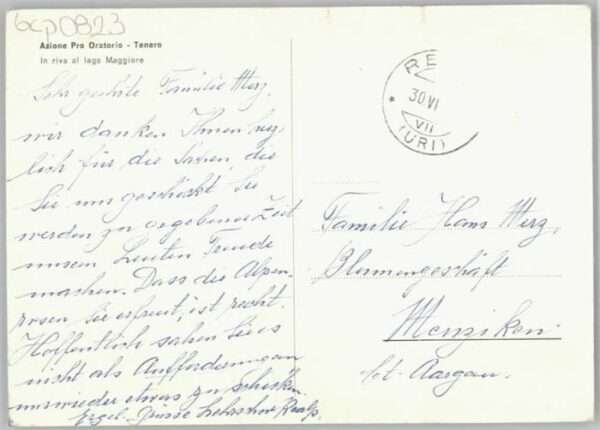 bcp0823
Azione Pro Oratorio - Tenero
In riva al lago Maggiore
Sehr geehrte Familie Merz,
wir danken Ihnen herz-
lich für die Sachen, die
Sie uns geschickt. Sie
werden zu gegebener Zeit
unsern Leuten Freude
machen. Dass die Alpen-
rosen Sie erfreut, ist recht.
Hoffentlich sahen Sie es
nicht als Aufforderung an
uns wieder etwas zu schicken.
Grüsse
RE
30 VI
VII
(URI)
Familie Hans Merz,
Blumengeschäft
Menziken
kt. Aargau.